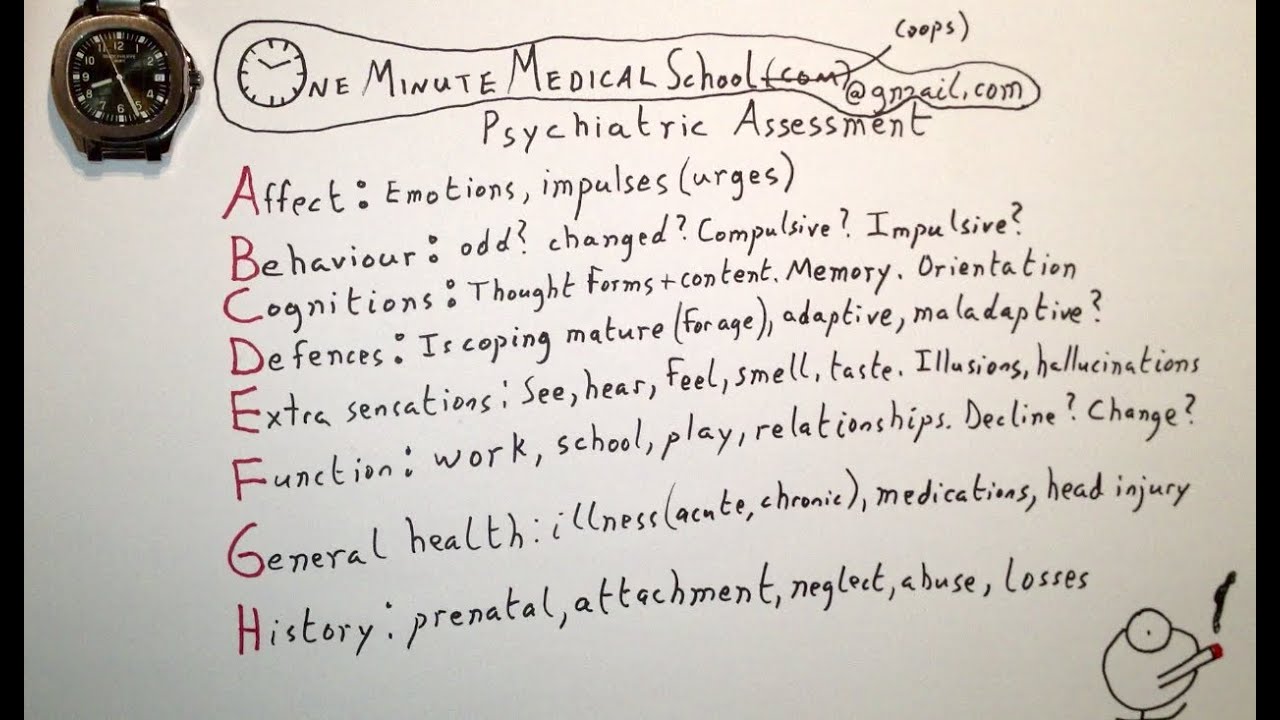 (oops)
One Minute Medical School (com) @gmail.com
Psychiatric Assessment
Affect: Emotions, impulses (urges)
Behaviour: odd? changed? Compulsive? Impulsive?
Cognitions: Thought forms + content. Memory. Orientation
Defences: Is coping mature (for age), adaptive, maladaptive?
Extra sensations: See, hear, feel, smell, taste. Illusions, hallucinations
Function: work, school, play, relationships. Decline? Change?
General health: illness (acute, chronic), medications, head injury
History: prenatal, attachment, neglect, abuse, losses